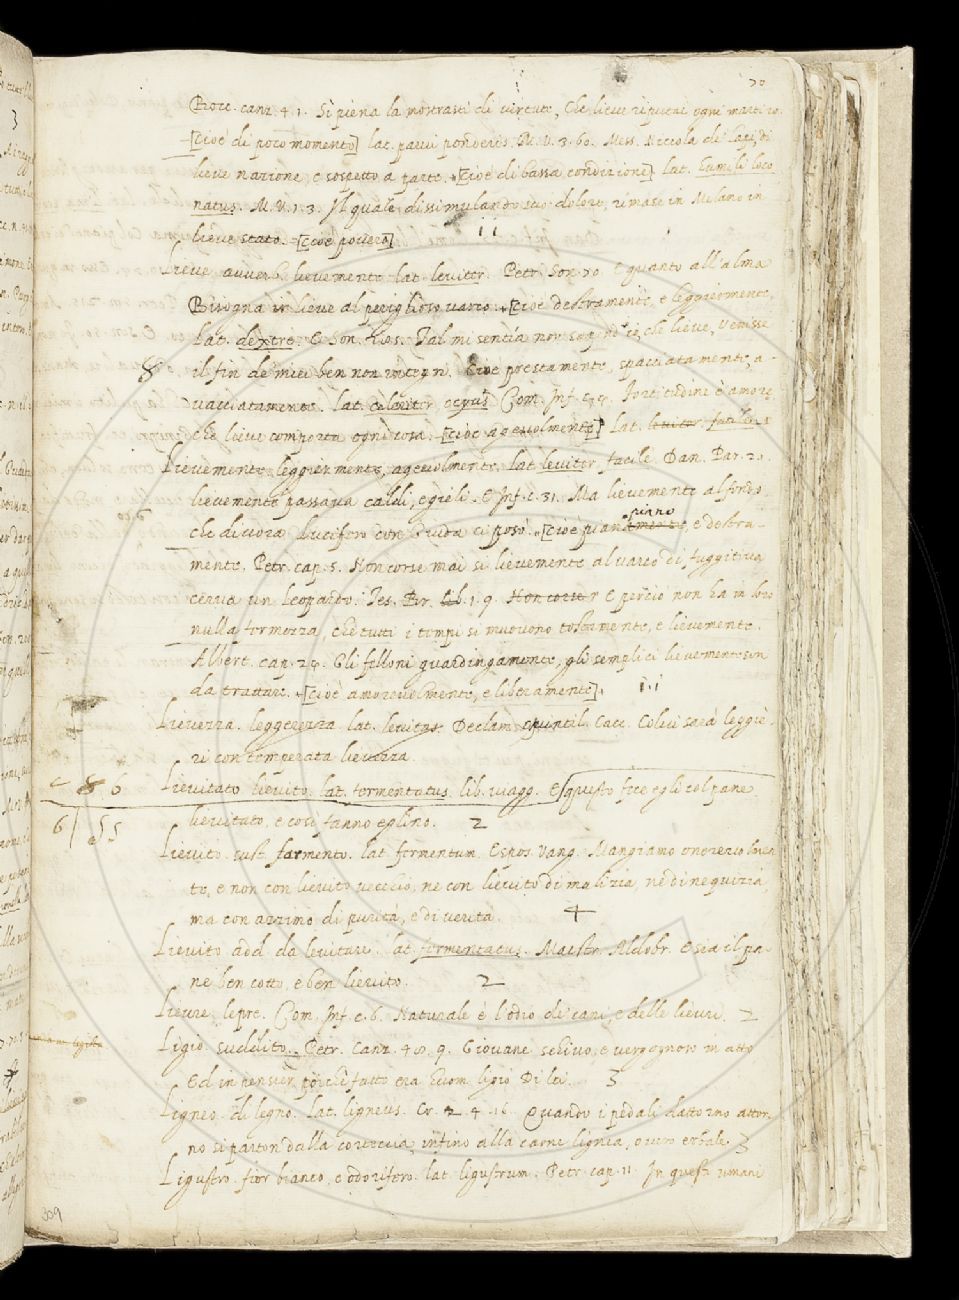 70
Bocc. canz. 4. 1. Sì piena la mostrasti di virtute, Che lieve riputeni ogni martiro.
[cioè di poco momento] lat. parvi ponderis. M. V. 3. 60. Mess. Niccola de' Lapi, di
lieve nazione, e sospetto a parte. [cioè di bassa condizione] lat. humili loco
natus. M. V. 1. 3. Il quale dissimulando suo dolore, rimase in Milano in
lieve stato. [cioè povero] 11
Lieve avverb. lievemente lat. leviter. Petr. Son. 70. E quanto all'alma
Bisogna ir lieve al periglioso varco. [cioè destramente, e leggiermente,
lat. dextre. E Son. Tal mi sentia non sapend'io, che lieve, Venisse
8 il fin de' miei ben non integri. Cioè prestamente, spacciatamente, a-
vacciatamente. lat. celeriter, ocyus Com. Inf. Fortitudine è amore
che lieve comporta ogni cosa. [cioè agevolmente] lat. leviter. facile. 1
Lievemente, leggiermente, agevolmente, lat. leviter, facile Dan. Par. 20.
lievemente passava caldi, e gieli. E Inf. c. 31. Ma lievemente al fondo,
che divora Lucifero con Giuda ci posò. [cioè pian piano, e destra-
mente. Petr. cap. 5. Non corse mai si lievemente al varco di fuggitiva
cerva un leopardo. Tes. Br. lib. 1. 9. Non corse E perciò non ha in loro
nulla fermezza, che tutti i tempi si muovono tostamente, e lievemente.
Albert. cap. 24. Gli felloni guardingamente, gli semplici lievemente son
da trattare. [cioè amorevolmente, e liberamente]. 11
Lievezza. leggerezza lat. levitas. Declam. Quintil. Colui sarà leggie-
ri con temperata lievezza.
8 6 Lievitato lievito. lat. fermentatus lib. viagg. E questo fece egli col pane
6 55 lievitato, e così fanno eglino. 2
Lievito sust. fermento. lat. fermentum. Espos. Vang. Mangiamo
to, e non con lievito vecchio, nè con lievito di malizia, nè di nequizia,
ma con azzimo di purità, e di verità. 4
Lievito add. da levitare. lat. fermentatus. Maestr. Aldobr. E sea il pa-
ne ben cotto, e ben lievito. 2
Lievre lepre. Com. Inf. c. 6. Naturale è l'odio de' cani, e delle lievre. 2
Ligio. suddito. Petr. Canz. 48. 9. Giovane schivo, e vergognoso in atto
Ed in pensier, poichè fatto era huom ligio Di lei. 3
Ligneo. di legno. lat. ligneus. Cr. 2. 4. 16. Quando i pedali dattorno attor-
no si parton dalla corteccia, infino alla carne lignea, overo erbale. 3
Ligustro. fior bianco, e odorifero. lat. ligustrum. Petr. cap. 11. In questi umani
309